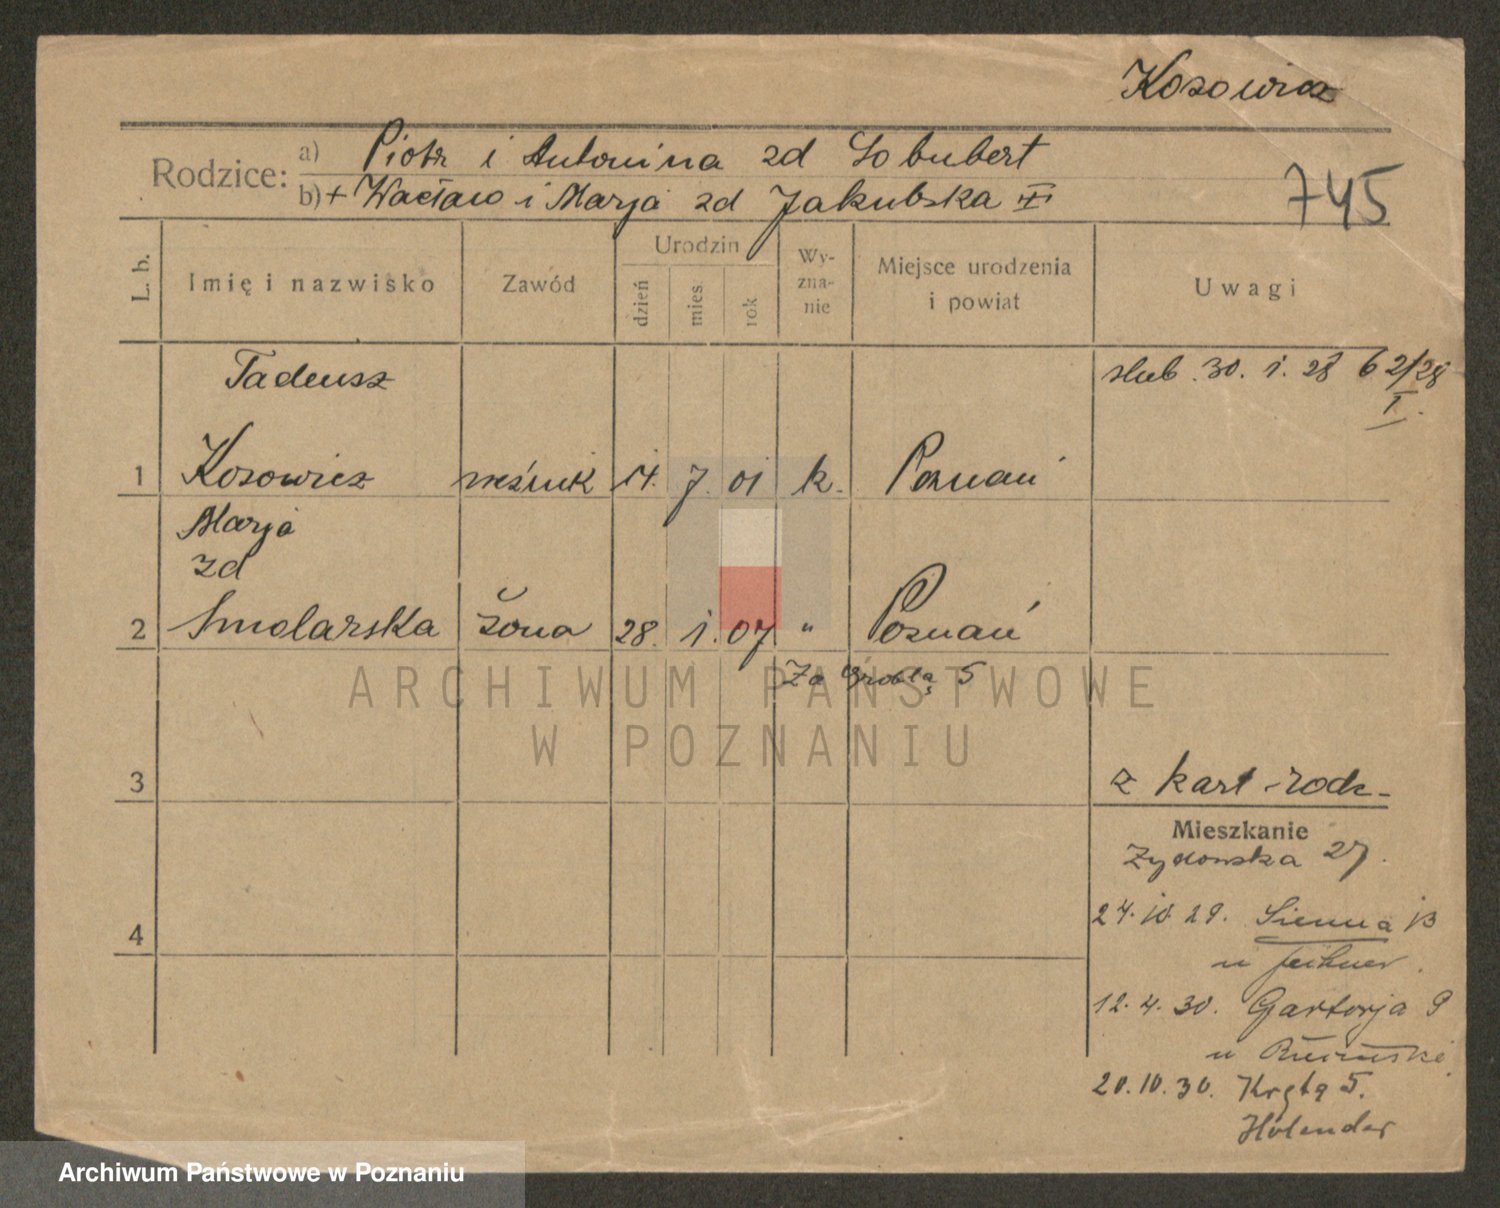 Kosowicz
Rodzice: a) Piotr i Antonina zd Lobubert
b) + Wacław i Marja zd Jakubska II
745
L. b.
Imię i nazwisko
Zawód
Urodzin
dzień
mies.
rok
Wy-
zna-
nie
Miejsce urodzenia
i powiat
Uwagi
Tadeusz
ślub 30. 1. 28 62/28
I.
1 Kosowicz rzeźnik 14. 7. 01 k. Poznań
Marja
zd
2 Smolarska żona 28. 1. 07 " Poznań
Za Groblą 5
ARCHIWUM PAŃSTWOWE
W POZNANIU
3
z kart - rodz -
Mieszkanie
Żydowska 27.
4
24. 10 29. Sienna
u
12. 4. 30. Garbary 9
u
20. 10. 30. Kręta 5.
Holender
Archiwum Państwowe w Poznaniu